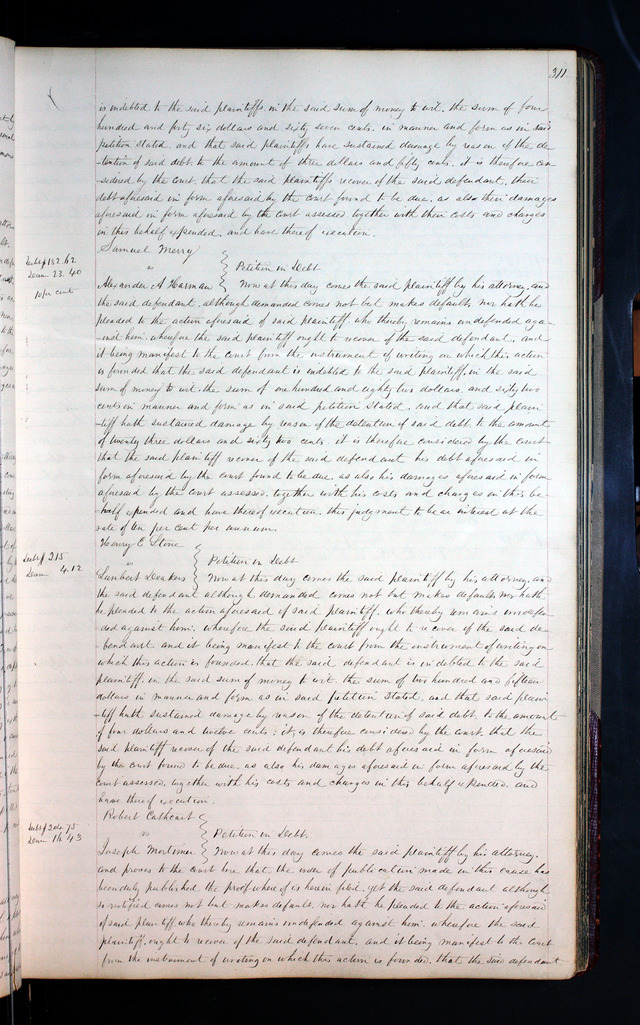 311
is indebted to the said plaintiffs in the said sum of money to wit, the sum of four
hundred and forty six dollars and sixty seven cents, in manner and form as in said
petition stated, and that said plaintiffs have sustained damage by reason of the de-
-tention of said debt to the amount of three dollars and fifty cents, it is therefore con-
-sidered by the court, that the said plaintiffs recover of the said defendant, their
debt aforesaid in form aforesaid by the court found to be due, as also their damages
aforesaid in form aforesaid by the court assessed together with their costs and charges
in this behalf expended, and have thereof execution.
Samuel Merry
Debt $182.62
Dam 23.40
10 per cent
vs
Petition in Debt
Alexander A Harman
Now at this day comes the said plaintiff by his attorney, and
the said defendant, although demanded comes not but makes default, nor hath he
pleaded to the action aforesaid of said plaintiff, who thereby remains undefended aga-
-inst him, wherefore the said plaintiff ought to recover of the said defendant, and
it being manifest to the court from the instrument of writing on which this action
is founded that the said defendant is indebted to the said plaintiff, in the said
sum of money to wit, the sum of one hundred and eighty two dollars, and sixty two
cents in manner and form as in said petition stated, and that said plain-
-tiff hath sustained damage by reason of the detention of said debt, to the amount
of twenty three dollars and sixty two cents, it is therefore considered by the court
that the said plaintiff recover of the said defendant his debt aforesaid in
form aforesaid by the court found to be due, as also his damages aforesaid in form
aforesaid by the court assessed, together with his costs and charges in this be-
-half expended and have thereof execution, this judgment to bear interest at the
rate of ten per cent per annum.
Henry C Stone
Debt $215
Dam 4.12
vs
Petition in Debt
Lambert Deakers
Now at this day comes the said plaintiff by his attorney, and
the said defendant although demanded comes not but makes default, nor hath
he pleaded to the action aforesaid of said plaintiff, who thereby remains undefen-
ded against him, wherefore the said plaintiff ought to recover of the said de-
-fendant, and it being manifest to the court from the instrument of writing on
which this action is founded, that the said defendant is indebted to the said
plaintiff, in the said sum of money to wit, the sum of two hundred and fifteen
dollars in manner and form as in said petition stated, and that said plain-
-tiff hath sustained damage by reason of the detention of said debt, to the amount
of four dollars and twelve cents; it is therefore considered by the court, that the
said plaintiff recover of the said defendant his debt aforesaid in form aforesaid
by the court found to be due, as also his damages aforesaid in form aforesaid by the
court assessed, together with his costs and charges in this behalf expended, and
have thereof execution.
Robert Cathcart
Debt $204.75
Dam 16.43
vs
Petition in Debt.
Joseph Mortimer
Now at this day comes the said plaintiff by his attorney,
and proves to the court here that the order of publication made in this cause has
been duly published, the proof whereof is herein filed, yet the said defendant although
so notified comes not but makes default, nor hath he pleaded to the action aforesaid
of said plaintiff, who thereby remains undefended against him, wherefore the said
plaintiff, ought to recover of the said defendant, and it being manifest to the court
from the instrument of writing on which this action is founded, that the said defendant